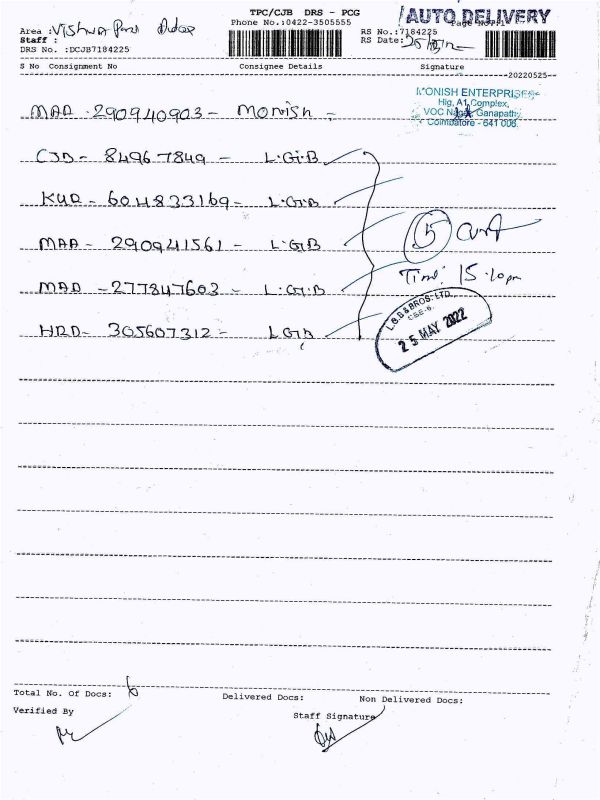 TPC/CJB DRS - PCG
AUTO DELIVERY
Phone No.:0422-3505555
Area :
Staff :
RS No.:7184225
DRS No. :DCJB7184225
RS Date:
S No Consignment No Consignee Details Signature
20220525
MONISH ENTERPRISES
Hig, A1 Complex,
VOC Ganapathy
Coimbatore - 641 006.
MAA - 290940903 - Monish -
CJB - 84967849 - L.G.B
KUR - 604833169 - L.G.B
MAA - 290941561 - L.G.B
5
Time: 15.10pm
MAA - 277847603 - L.G.B
L.G.B & BROS. LTD.
CBE-6.
25 MAY 2022
HRD - 305607312 - LGB
Total No. Of Docs: 6 Delivered Docs: Non Delivered Docs:
Verified By
Staff Signature